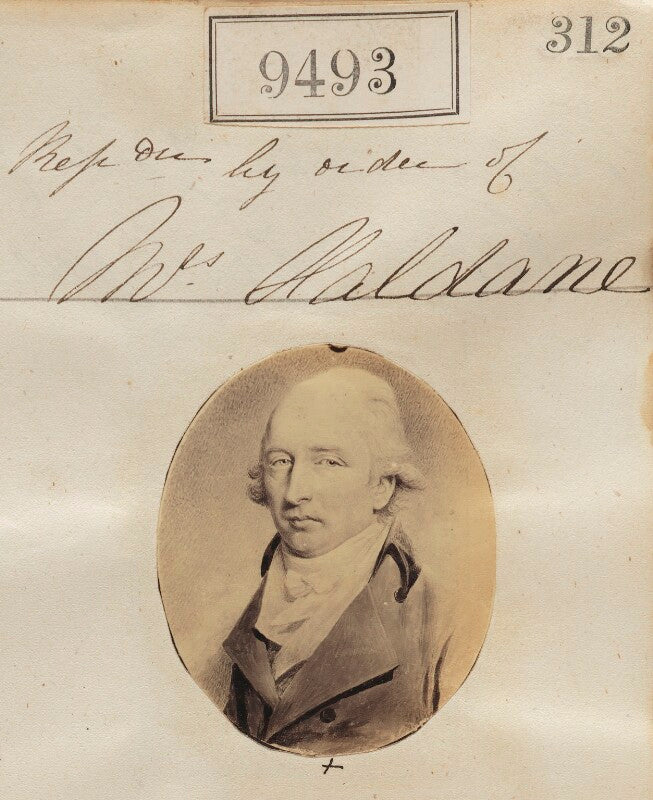 9493
312
Rep Dn by order of
Mrs. Haldane
+